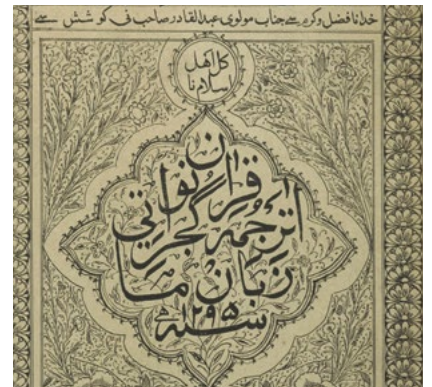 خدانا فضل وکرم سے جناب مولوی عبدالقادر صاحب نی کوشش سے
کل اهل
اسلام نا
قران نو
اترجمه گجراتی
زبان ما
سنه ۱۲۹۵